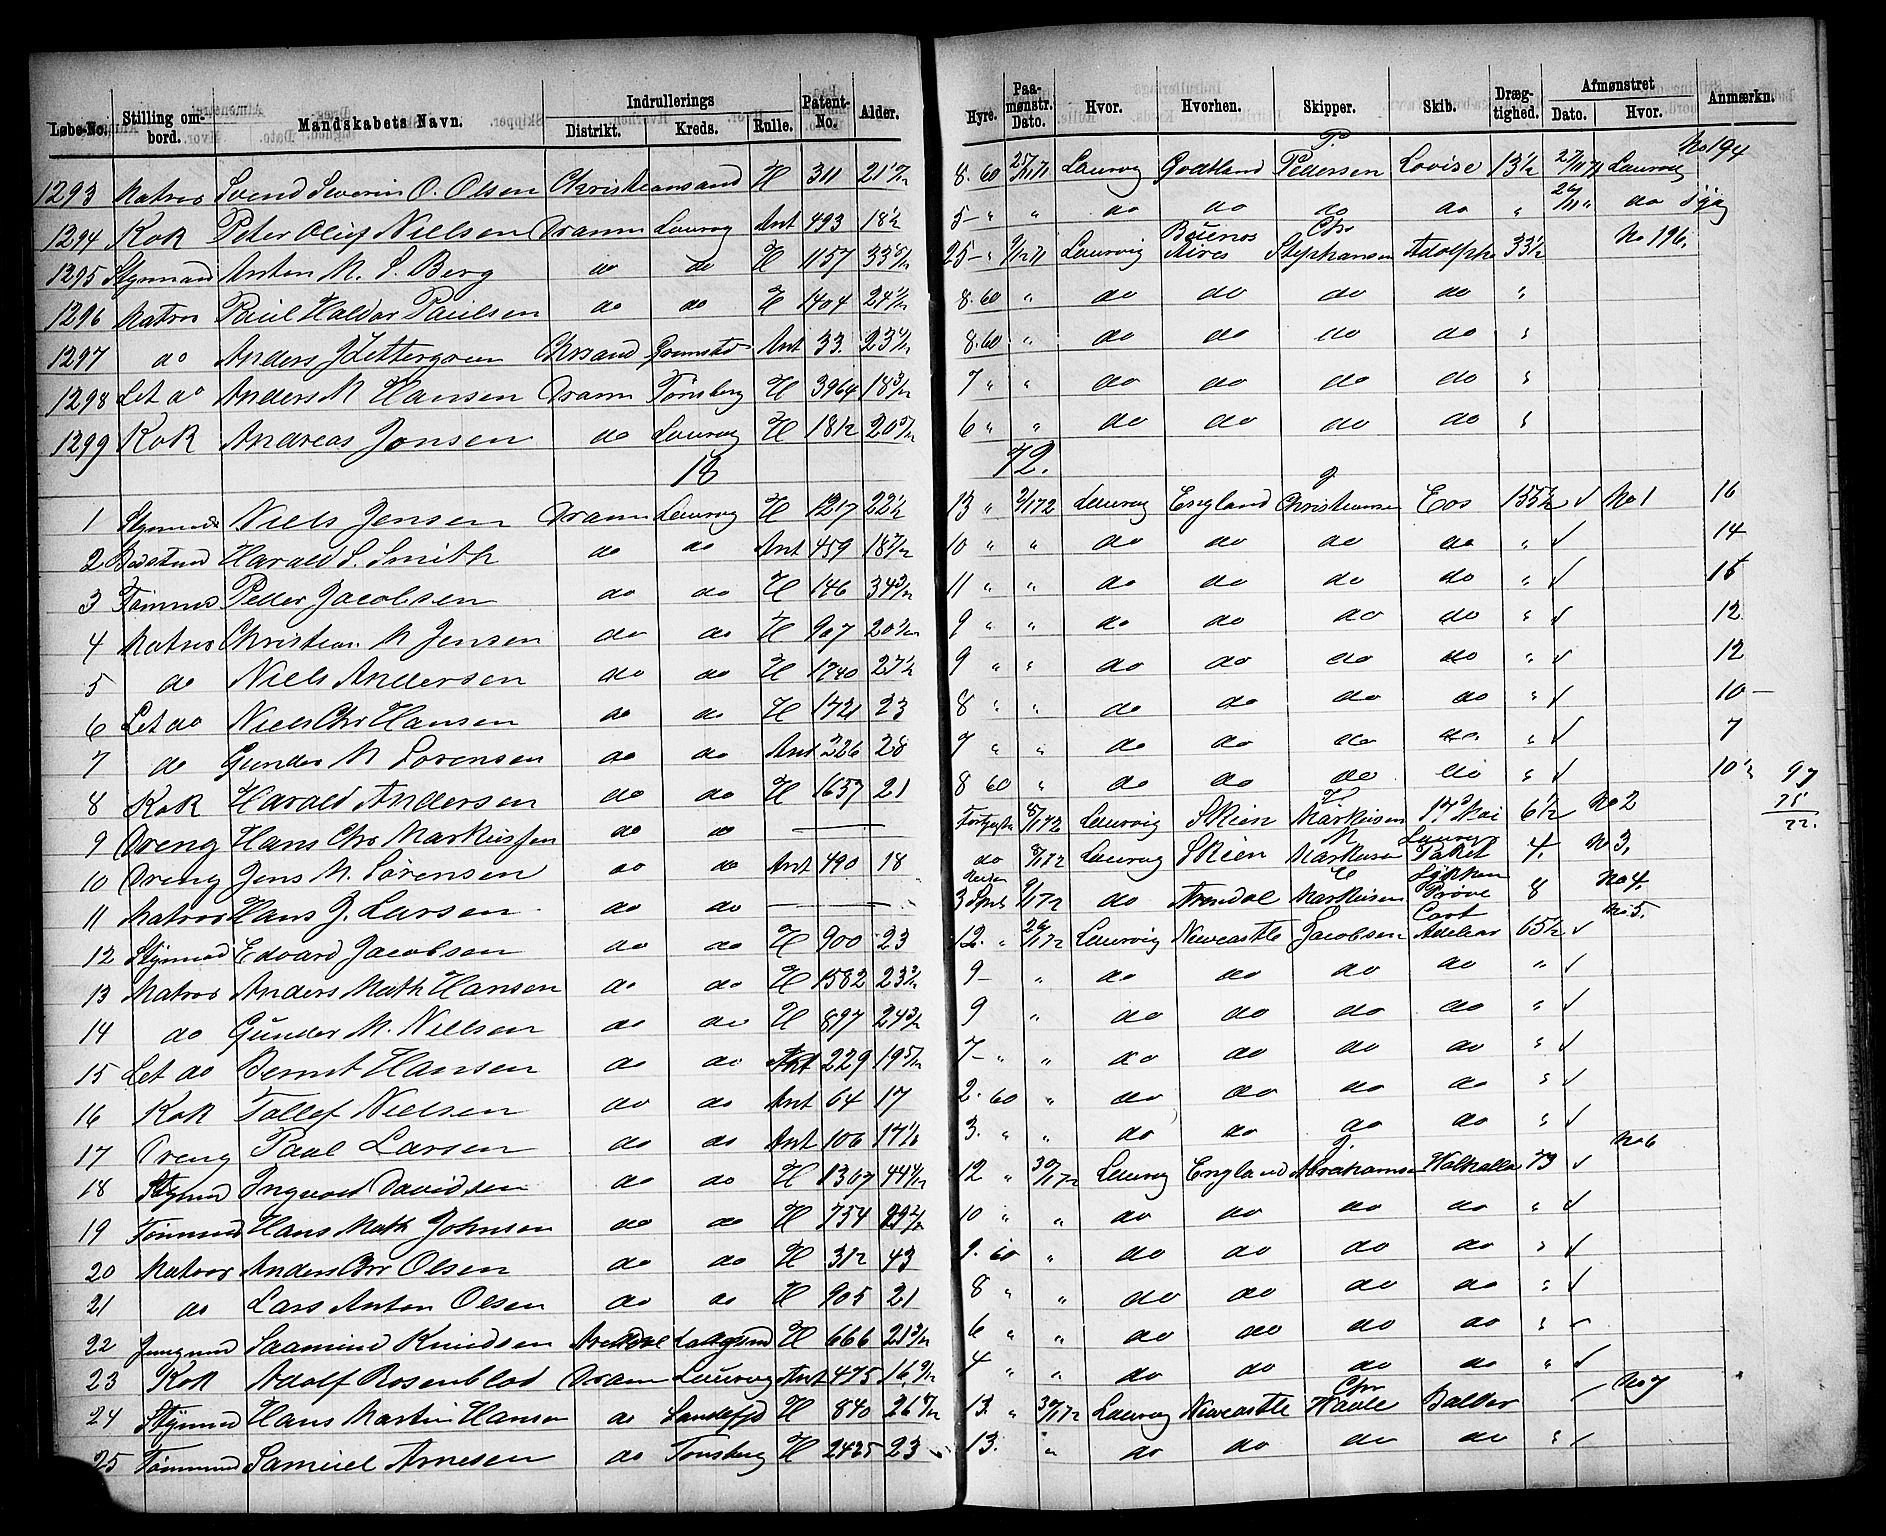 Løbe-No. Stilling ombord. Mandskabets Navn. Indrullerings Distrikt. Kreds. Rulle. Patent-No. Alder. Hyre. Paamønstr. Dato. Hvor. Hvorhen. Skipper. Skib. Drægtighed. Afmønstret Dato. Hvor. Anmærkn.
1293 Matros Svend Severin O. Olsen Christiansand H 311 8. 60 25/11 71 Laurvig Godtland P. Pedersen Lovise 13½ 27/11 71 Laurvig No 194
1294 Kok Peter Oluf Nielsen Dramm Laurvig Ant 493 18½ 5 - " " do do do do " do
1295 Styrmand Anton M. S. Berg do do H 1157 33 8/12 25 - " 9/12 71 Laurvig Buenos Aires Chr Stephansen Adolph 33½ No 196.
1296 Matros Paul Haldor Paulsen do do H 1404 24½ 8. 60 " do do do do "
1297 do Anders Zettergren Chrsand Grimstd Ant 33. 8. 60 " do do do do "
1298 Let do Anders M Hansen Dramm Tønsberg H 3964 18 3/12 7 " " do do do do "
1299 Kok Andreas Jonsen do Laurvig H 1812 20 5/12 6 " " do do do do "
18 72.
1 Styrmd Niels Jensen Dramm Laurvig H 1217 22½ 13 " 2/1 72 Laurvig England J Christiansen Eos 155½ ✓ No 1 16
2 Harald S. Smith do do Ant 459 18 7/12 10 " " do do do do " ✓ 14
3 Tømmd Peder Jacobsen do do H 146 34 3/12 11 " " do do do do " ✓ 15
4 Matros Christian M Jensen do do H 907 9 " " do do do do " ✓ 12
5 do Niels Andersen do do H 1240 27½ 9 " " do do do do " ✓ 12
6 Let do Niels Chr Hansen do do H 1721 23 8 " " do do do do " ✓ 10 -
7 do Gunder M Sorensen do do Ant 226 28 7 " " do do do do " ✓ 7
8 Kok Harald Andersen do do H 1657 21 8 60 " do do do do " ✓ 10½ 97
9 Dreng Hans Chr Markussen do do 8/1 72 Laurvig Skien Markusen 17 Mai 6½ No 2 75
22.
10 Dreng Jens M. Sørensen do do Ant 490 18 do 8/1 72 Laurvig Skien M Markusen Laurvigs Paket 4. No 3.
11 Matros Hans J. Larsen do do 9/1 72 do Arendal E Markusen Lykkens Prøve 8 No 4.
12 Styrmd Edvard Jacobsen do do H 900 23 12. " 26/1 72 Laurvig Newcastle Jacobsen Cort Adelaar 65½ ✓ No 5.
13 Matros Anders Math Hansen do do H 1582 9 - " do do do do " ✓
14 do Gunder M. Nielsen do do H 897 24 3/12 9 " do do do do " ✓
15 Let do Bernt Hansen do do Ant 229 19 5/12 7 - " " do do do do " ✓
16 Kok Tollef Nielsen do do Ant 64 17 2. 60 " do do do do " ✓
17 Dreng Paul Larsen do do Ant 106 17½ 3. " " do do do do " ✓
18 Styrmd Ingvald Davidsen do do H 1307 12 " 30/1 72 Laurvig England J. Abrahamsen Walhalla 73 ✓ No 6
19 Tømmd Hans Math Johnsen do do H 754 10 " " do do do do " ✓
20 Matros Anders Chr Olsen do do H 312 43 9. 60 " do do do do " ✓
21 do Lars Anton Olsen do do H 905 21 8 " " do do do do " ✓
22 Jungmd Saamund Knudsen Arendal H 666 21 3/12 6 " " do do do do " ✓
23 Kok Adolf Rosenblad Dramm Laurvig Ant 475 16 9/12 4 " " do do do do " ✓
24 Styrmd Hans Martin Hansen do Sandefjd H 840 13. " 30/1 72 Laurvig Newcastle Chr Balder ✓ No 7
25 Tømmd Samuel Arnesen do Tønsberg H 2425 23 13. " do do do do " ✓